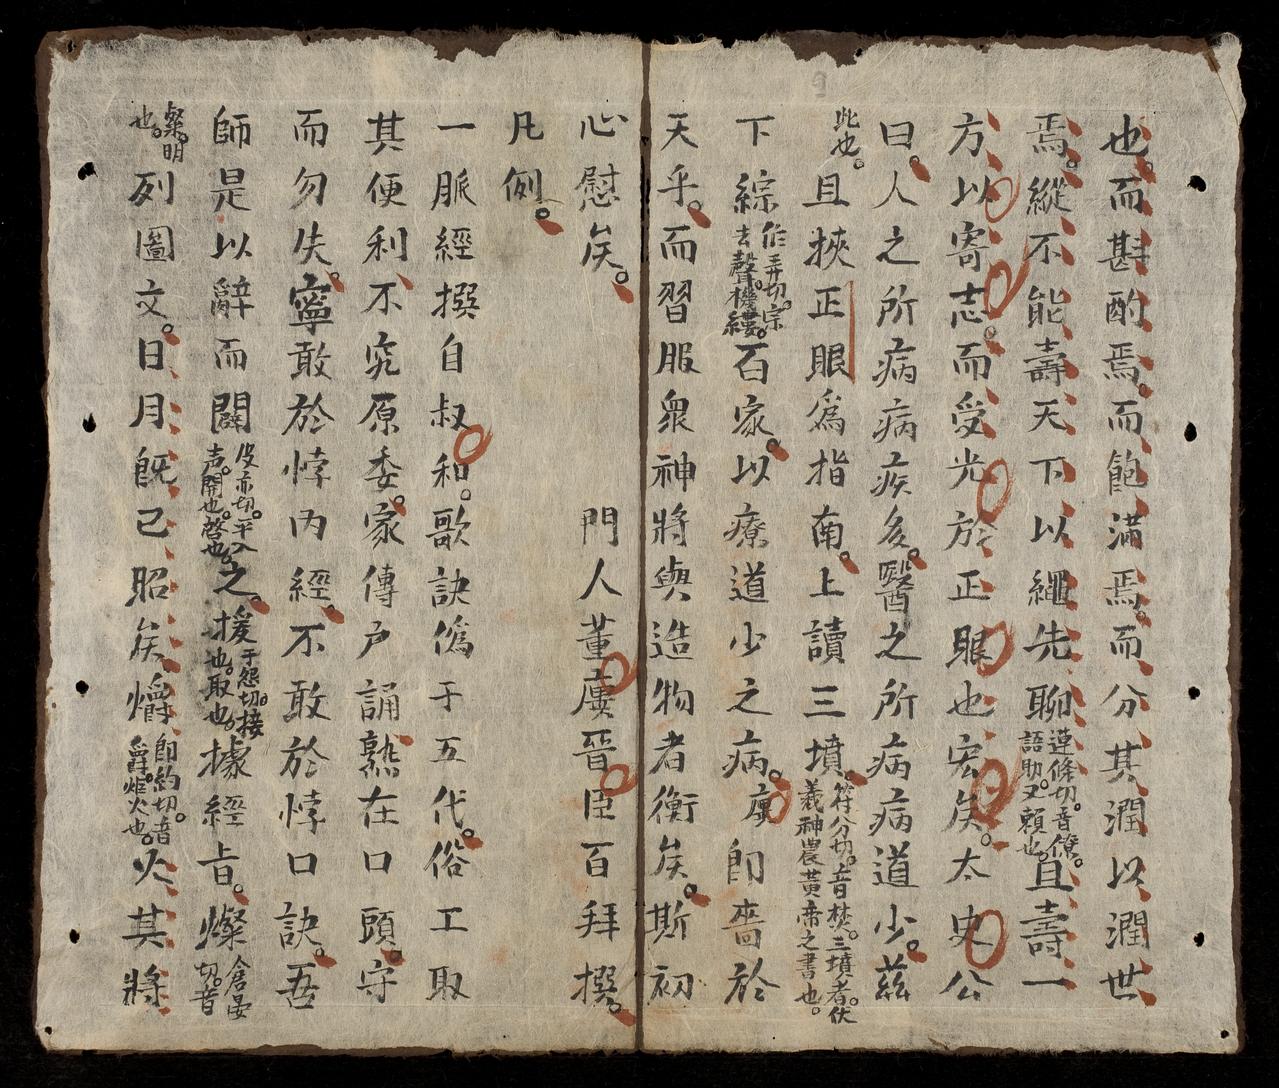 也。而斟酌焉。而飽滿焉。而分其潤以潤世
焉。縱不能壽天下以繩先聊連條切。音僚。語助。又賴也。且壽一
方以寄志。而受光於正眼也宏矣。太史公
曰。人之所病病疾多。醫之所病病道少。茲
此也。且挾正眼爲指南。上讀三墳。符分切。音焚。三墳者。伏羲神農黃帝之書也。
下綜作弄切。宗去聲。機縷。百家。以療道少之病。庚卽啬於
天乎。而習服衆神將與造物者衡矣。斯初
心慰矣。
門人董 晉臣百拜撰。
凡例。
一脈經撰自叔和。歌訣僞于五代。俗工取
其便利不究原委。家傳户誦熟在口頭。守
而勿失。寧敢於悖內經。不敢於悖口訣。吾
師是以辭而闢皮亦切。平入声。開也。啓也。之。援于怨切。接也。取也。據經旨。燦倉晏切。音
粲。明也。列圖文。日月旣已昭矣爝卽約切。音爵。炬火也。火其將